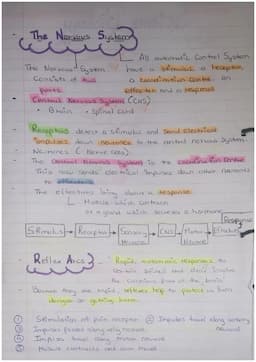 The Nervous System
All automatic Control System
The Nervous System have a stimulus a receptor
Consists of two a coordination centre an
parts effector and a response
Central Nervous System (CNS)
• Brain • Spinal Cord
Receptors detect a stimulus and send electrical
impulses down neurones to the central nervous system
Neurones (Nerve cells)
The Central Nervous System is the coordination centre
This now sends electrical impulses down other neurones
to effectors
The effectors bring about a response
Muscle which contracts
or a gland which secretes a hormone
Stimulus → Receptor → Sensory Neurone → CNS → Motor Neurone → Effector Response
Reflex Arcs
- Rapid, automatic responses to
certain stimuli that don't involve
the conscious part of the brain
Because they are rapid, reflexes help to protect us from
danger or getting harm
① Stimulation of pain receptor ② Impulses travel along sensory
neurone
③ Impulses passed along relay neurone
④ Impulses travel along motor neurone
⑤ Muscle contracts and arm moved